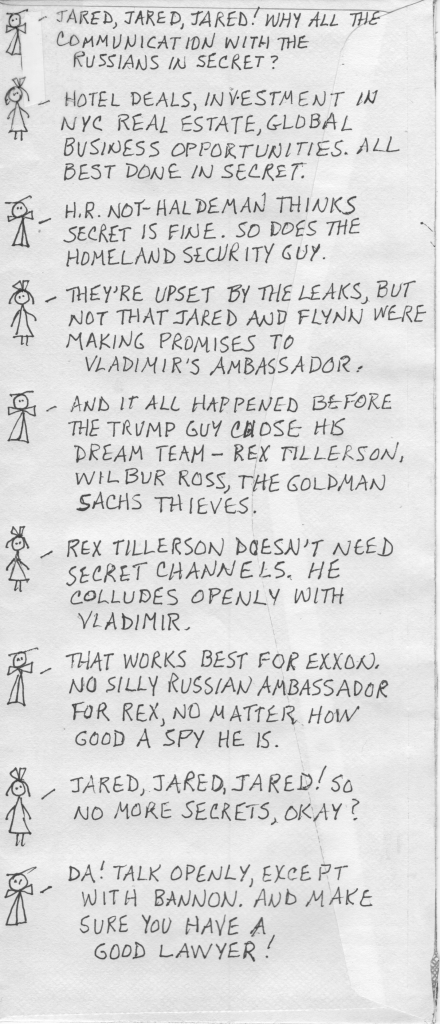 JARED, JARED, JARED! WHY ALL THE
COMMUNICATION WITH THE
RUSSIANS IN SECRET?
HOTEL DEALS, INVESTMENT IN
NYC REAL ESTATE, GLOBAL
BUSINESS OPPORTUNITIES. ALL
BEST DONE IN SECRET.
H.R. NOT-HALDEMAN THINKS
SECRET IS FINE. SO DOES THE
HOMELAND SECURITY GUY.
THEY'RE UPSET BY THE LEAKS, BUT
NOT THAT JARED AND FLYNN WERE
MAKING PROMISES TO
VLADIMIR'S AMBASSADOR.
AND IT ALL HAPPENED BEFORE
THE TRUMP GUY CHOSE HIS
DREAM TEAM - REX TILLERSON,
WILBUR ROSS, THE GOLDMAN
SACHS THIEVES.
REX TILLERSON DOESN'T NEED
SECRET CHANNELS. HE
COLLUDES OPENLY WITH
VLADIMIR.
THAT WORKS BEST FOR EXXON.
NO SILLY RUSSIAN AMBASSADOR
FOR REX, NO MATTER HOW
GOOD A SPY HE IS.
JARED, JARED, JARED! SO
NO MORE SECRETS, OKAY?
DA! TALK OPENLY, EXCEPT
WITH BANNON. AND MAKE
SURE YOU HAVE A
GOOD LAWYER!